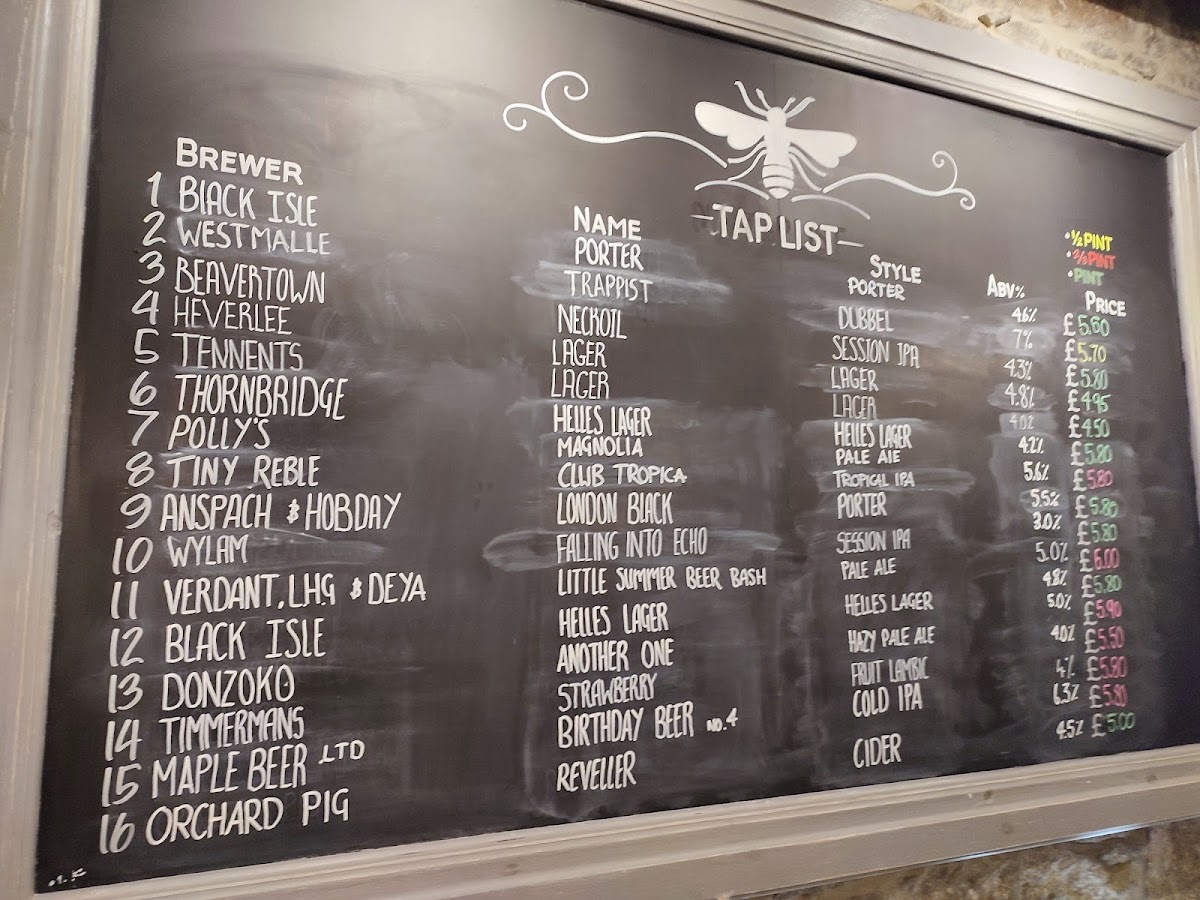 TAP LIST
• ½ PINT
• ⅔ PINT
• PINT
BREWER NAME STYLE ABV% PRICE
1 BLACK ISLE PORTER PORTER 4.6% £5.60
2 WESTMALLE TRAPPIST DUBBEL 7% £5.70
3 BEAVERTOWN NECKOIL SESSION IPA 4.3% £5.80
4 HEVERLEE LAGER LAGER 4.8% £4.95
5 TENNENTS LAGER LAGER 4.0% £4.50
6 THORNBRIDGE HELLES LAGER HELLES LAGER 4.2% £5.80
7 POLLY'S MAGNOLIA PALE ALE 5.6% £5.80
8 TINY REBLE CLUB TROPICA TROPICAL IPA 5.5% £5.80
9 ANSPACH & HOBDAY LONDON BLACK PORTER 3.0% £5.80
10 WYLAM FALLING INTO ECHO SESSION IPA 5.0% £6.00
11 VERDANT, L.H.G & DEYA LITTLE SUMMER BEER BASH PALE ALE 4.8% £5.80
12 BLACK ISLE HELLES LAGER HELLES LAGER 5.0% £5.90
13 DONZOKO ANOTHER ONE HAZY PALE ALE 4.0% £5.50
14 TIMMERMANS STRAWBERRY FRUIT LAMBIC 4% £5.80
15 MAPLE BEER LTD BIRTHDAY BEER NO.4 COLD IPA 6.3% £5.80
16 ORCHARD PIG REVELLER CIDER 4.5% £5.00